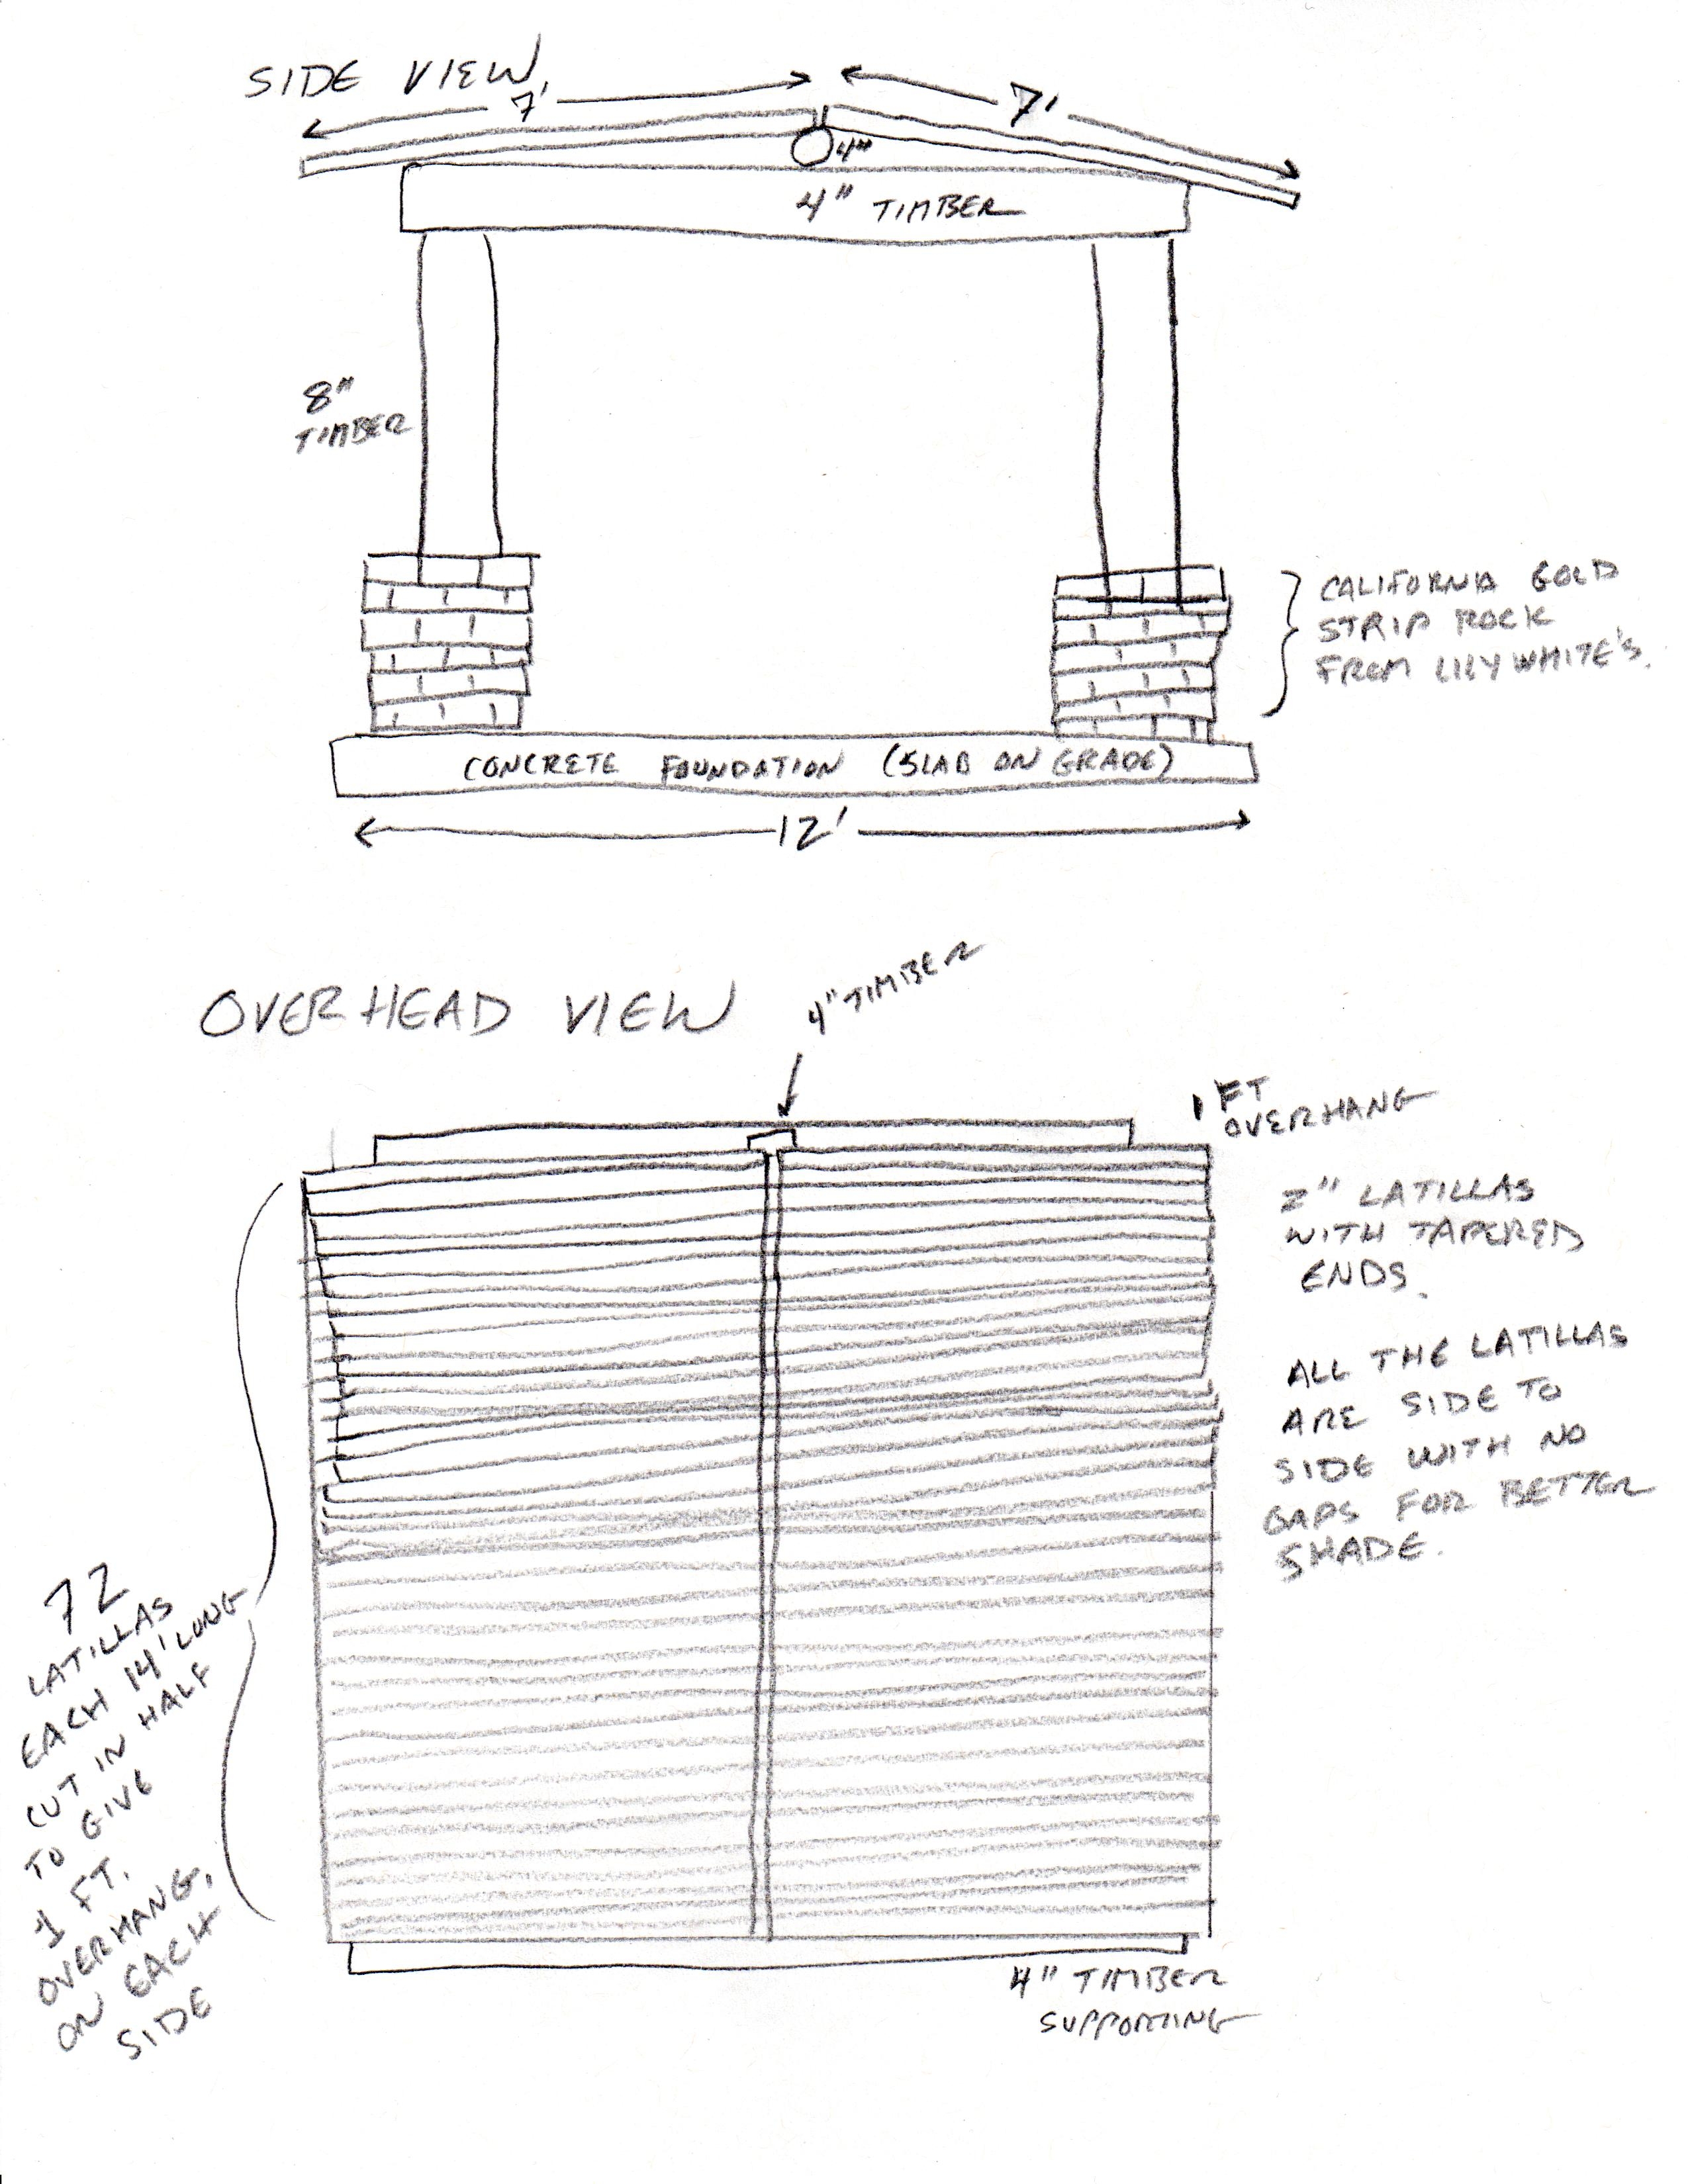 SIDE VIEW
7'
7'
4"
4" TIMBER
8"
TIMBER
CALIFORNIA GOLD
STRIP ROCK
FROM LILYWHITE'S.
CONCRETE FOUNDATION (SLAB ON GRADE)
12'
OVERHEAD VIEW
4" TIMBER
1 FT
OVERHANG
2" LATILLAS
WITH TAPERED
ENDS.
ALL THE LATILLAS
ARE SIDE TO
SIDE WITH NO
GAPS FOR BETTER
SHADE.
72
LATILLAS
EACH 14' LONG
CUT IN HALF
TO GIVE
1 FT.
OVERHANG.
ON EACH
SIDE
4" TIMBER
SUPPORTING